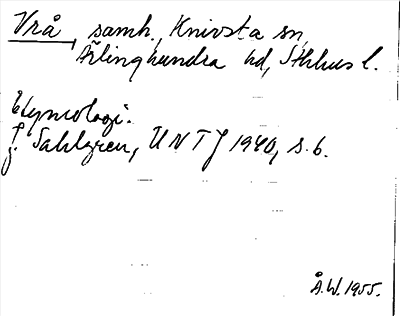 Vrå, samh., Knivsta sn,
Ärlinghundra hd, Sthlms l.
Etymologi:
J. Sahlgren, UNTJ 1940, s. 6.
Å.W. 1955.